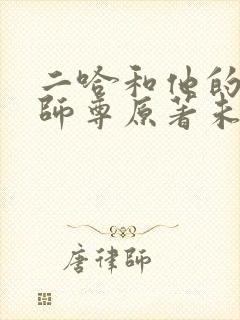 二哈和他的
師尊原著未
唐律師